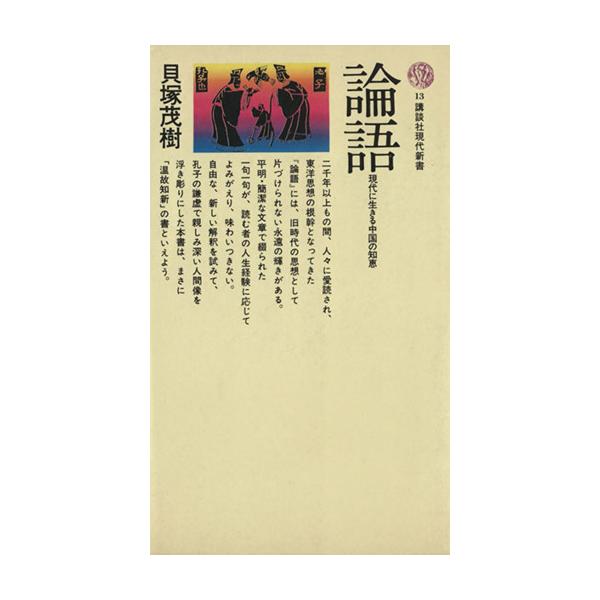 13 講談社現代新書
論語
現代に生きる中国の知恵
二千年以上もの間、人々に愛読され、
東洋思想の根幹となってきた
『論語』には、旧時代の思想として
片づけられない永遠の輝きがある。
平明・簡潔な文章で綴られた
一句一句が、読む者の人生経験に応じて
よみがえり、味わいつきない。
自由な、新しい解釈を試みて、
孔子の謙虚で親しみ深い人間像を
浮き彫りにした本書は、まさに
「温故知新」の書といえよう。
貝塚茂樹